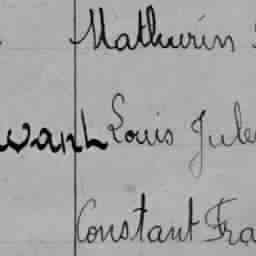 Mathurin
Louis Jule
Constant Fra